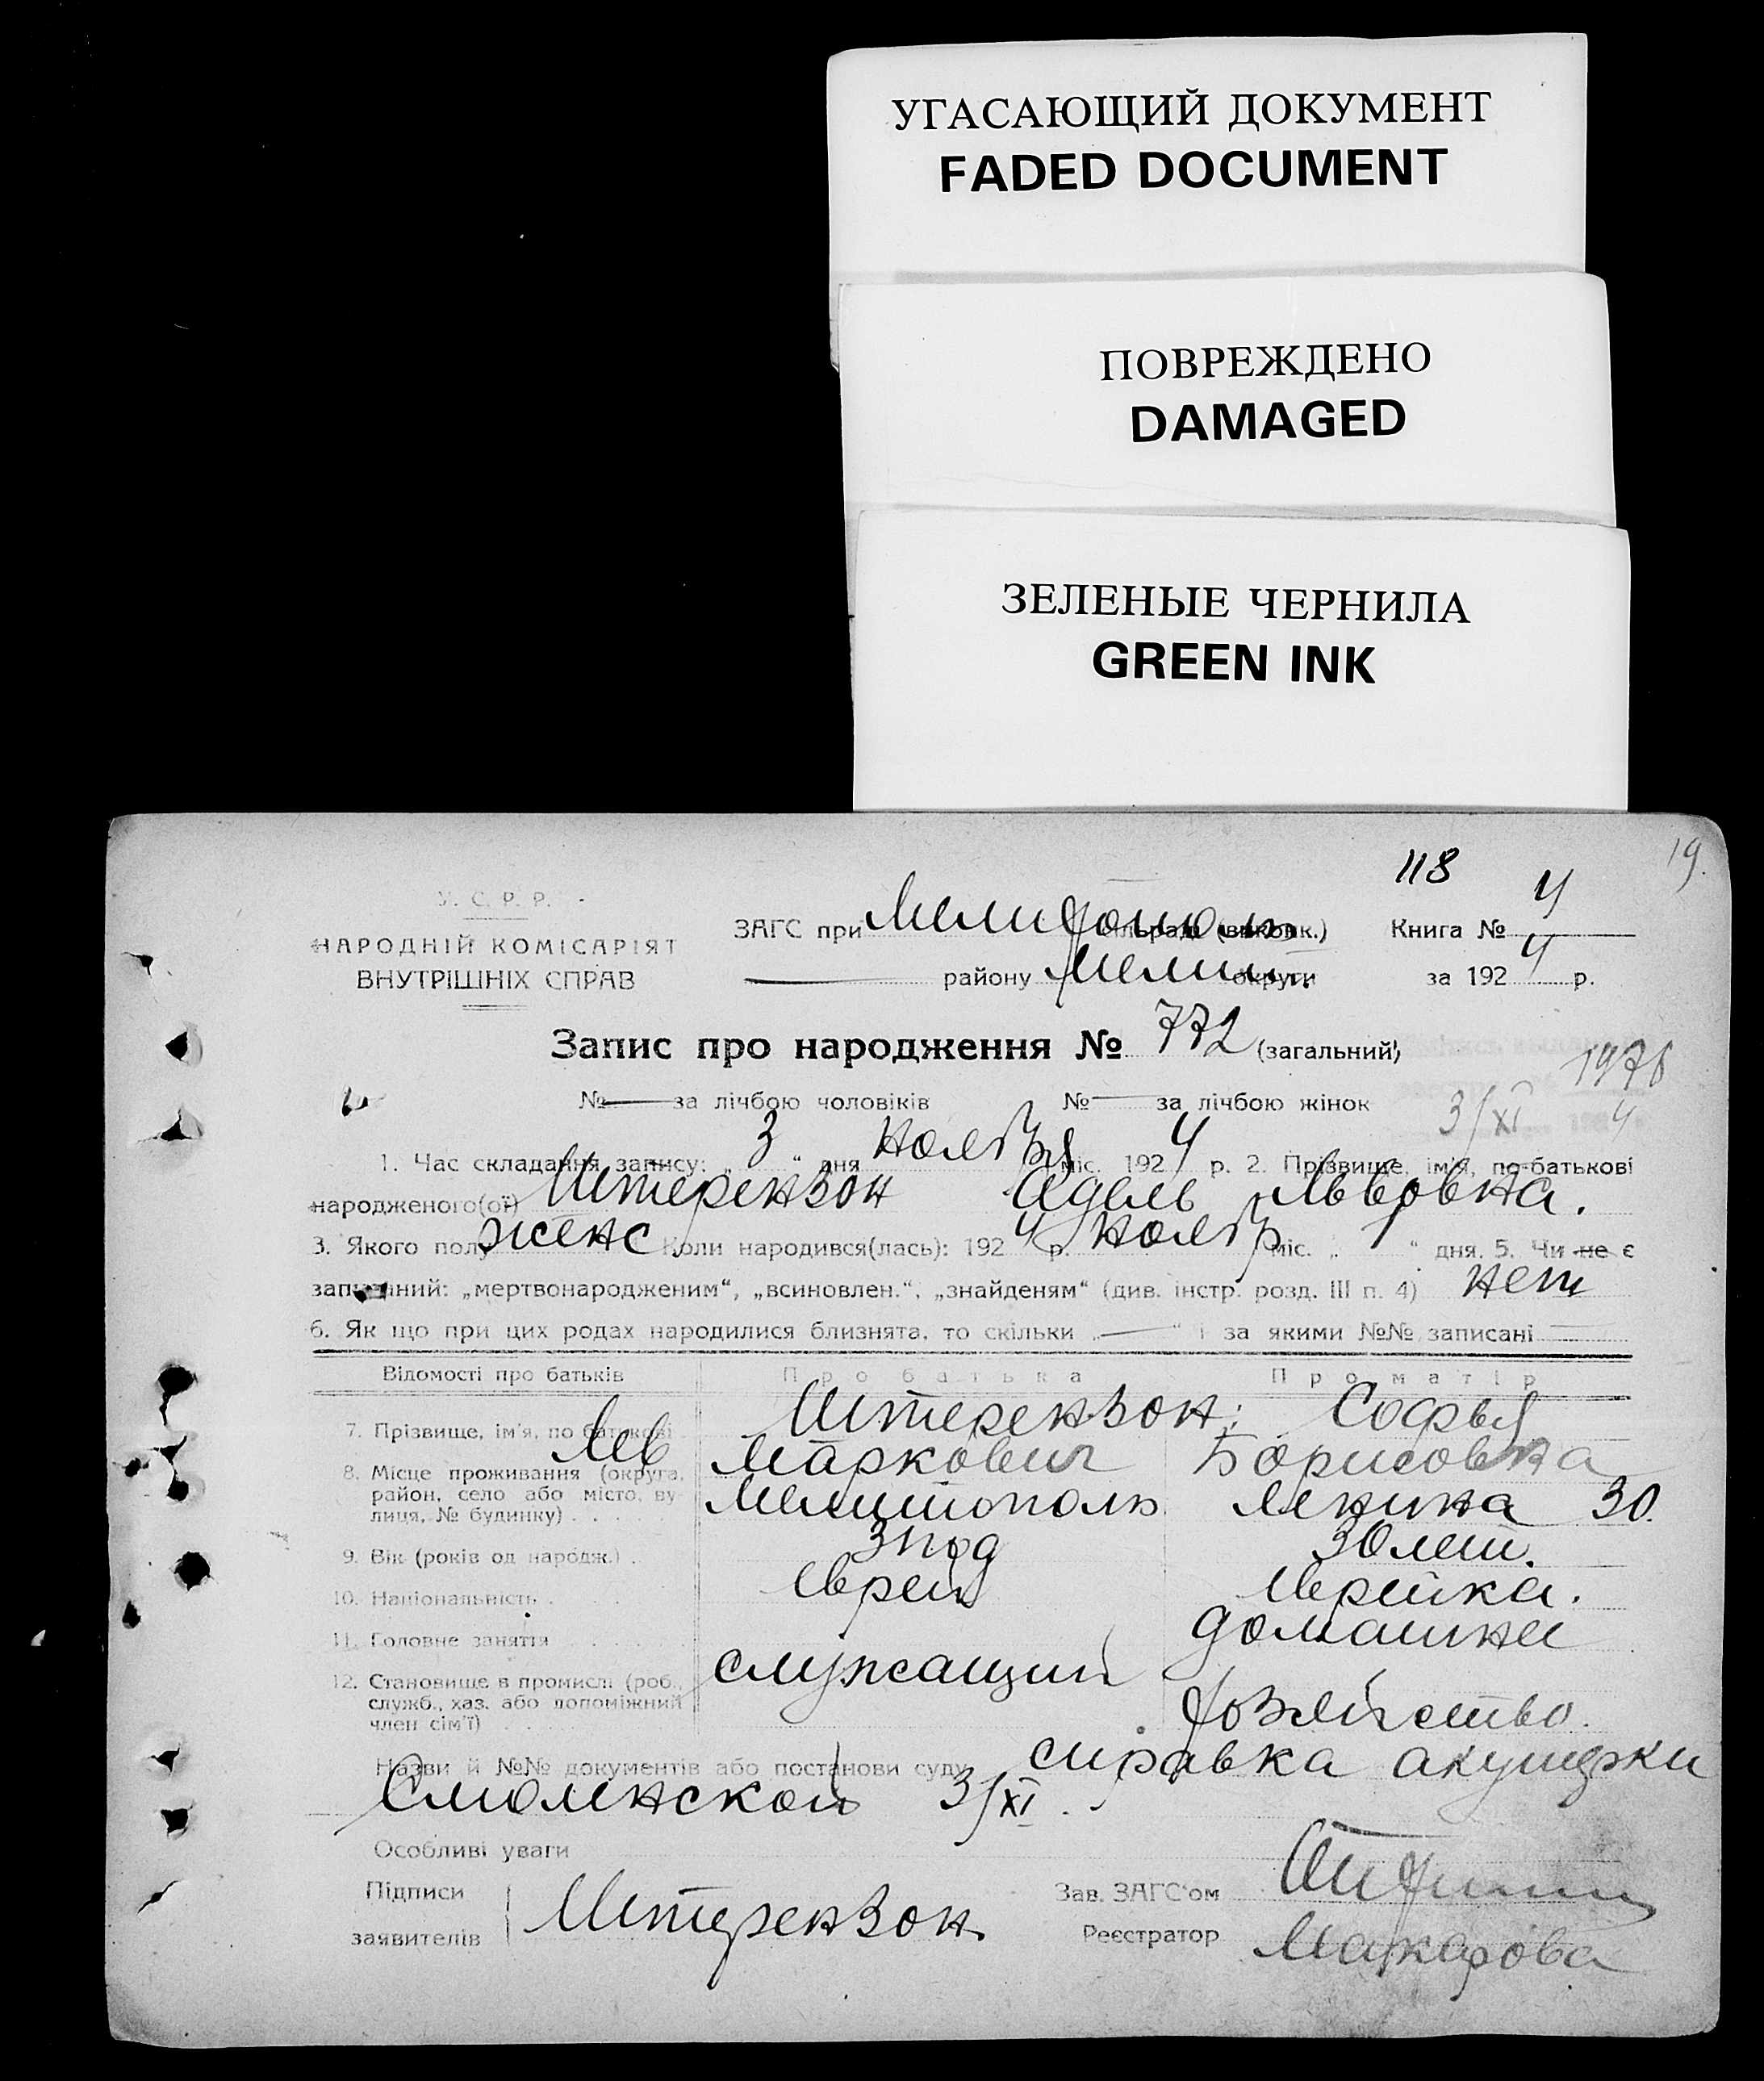 УГАСАЮЩИЙ ДОКУМЕНТ
FADED DOCUMENT
ПОВРЕЖДЕНО
DAMAGED
ЗЕЛЕНЫЕ ЧЕРНИЛА
GREEN INK
118
19.
У. С. Р. Р.
НАРОДНІЙ КОМІСАРІЯТ
ВНУТРІШНІХ СПРАВ
ЗАГС при Мелитополь сільраді (виконк.) Книга № 4
району Мелит. округи за 1924 р.
Запис про народження № 772 (загальний)
№ — за лічбою чоловіків № — за лічбою жінок
3/XI 4
1. Час складання запису: „3“ дня ноября міс. 1924 р. 2. Прізвище, ім'я, по-батькові
народженого(ої) Штерензон Адель Львовна.
3. Якого полу женс. Коли народився(лась): 1924 р. ноябр міс. „1“ дня. 5. Чи не є
записаний: „мертвонародженим“, „всиновлен.“, „знайденям“ (див. інстр. розд. III п. 4) нет
6. Як що при цих родах народилися близнята, то скільки „—“ і за якими №№ записані
Відомості про батьків Про батька Про матір
7. Прізвище, ім'я, по батькові Штерензон; Лев Маркович Софья Борисовна
8. Місце проживання (округа, район, село або місто, вулиця, № будинку) Мелитополь Ленина 30.
9. Вік (років од народж.) 31 год 30 лет.
10. Національність еврей еврейка.
11. Головне заняття домашнее
12. Становище в промисл. (роб., служб., хаз. або допоміжний член сім'ї) служащий хозяйство.
Назви й №№ документів або постанови суду справка акушерки
Смоленской 3/XI.
Особливі уваги
Підписи заявителів Штерензон
Зав. ЗАГС'ом
Реєстратор Макарова